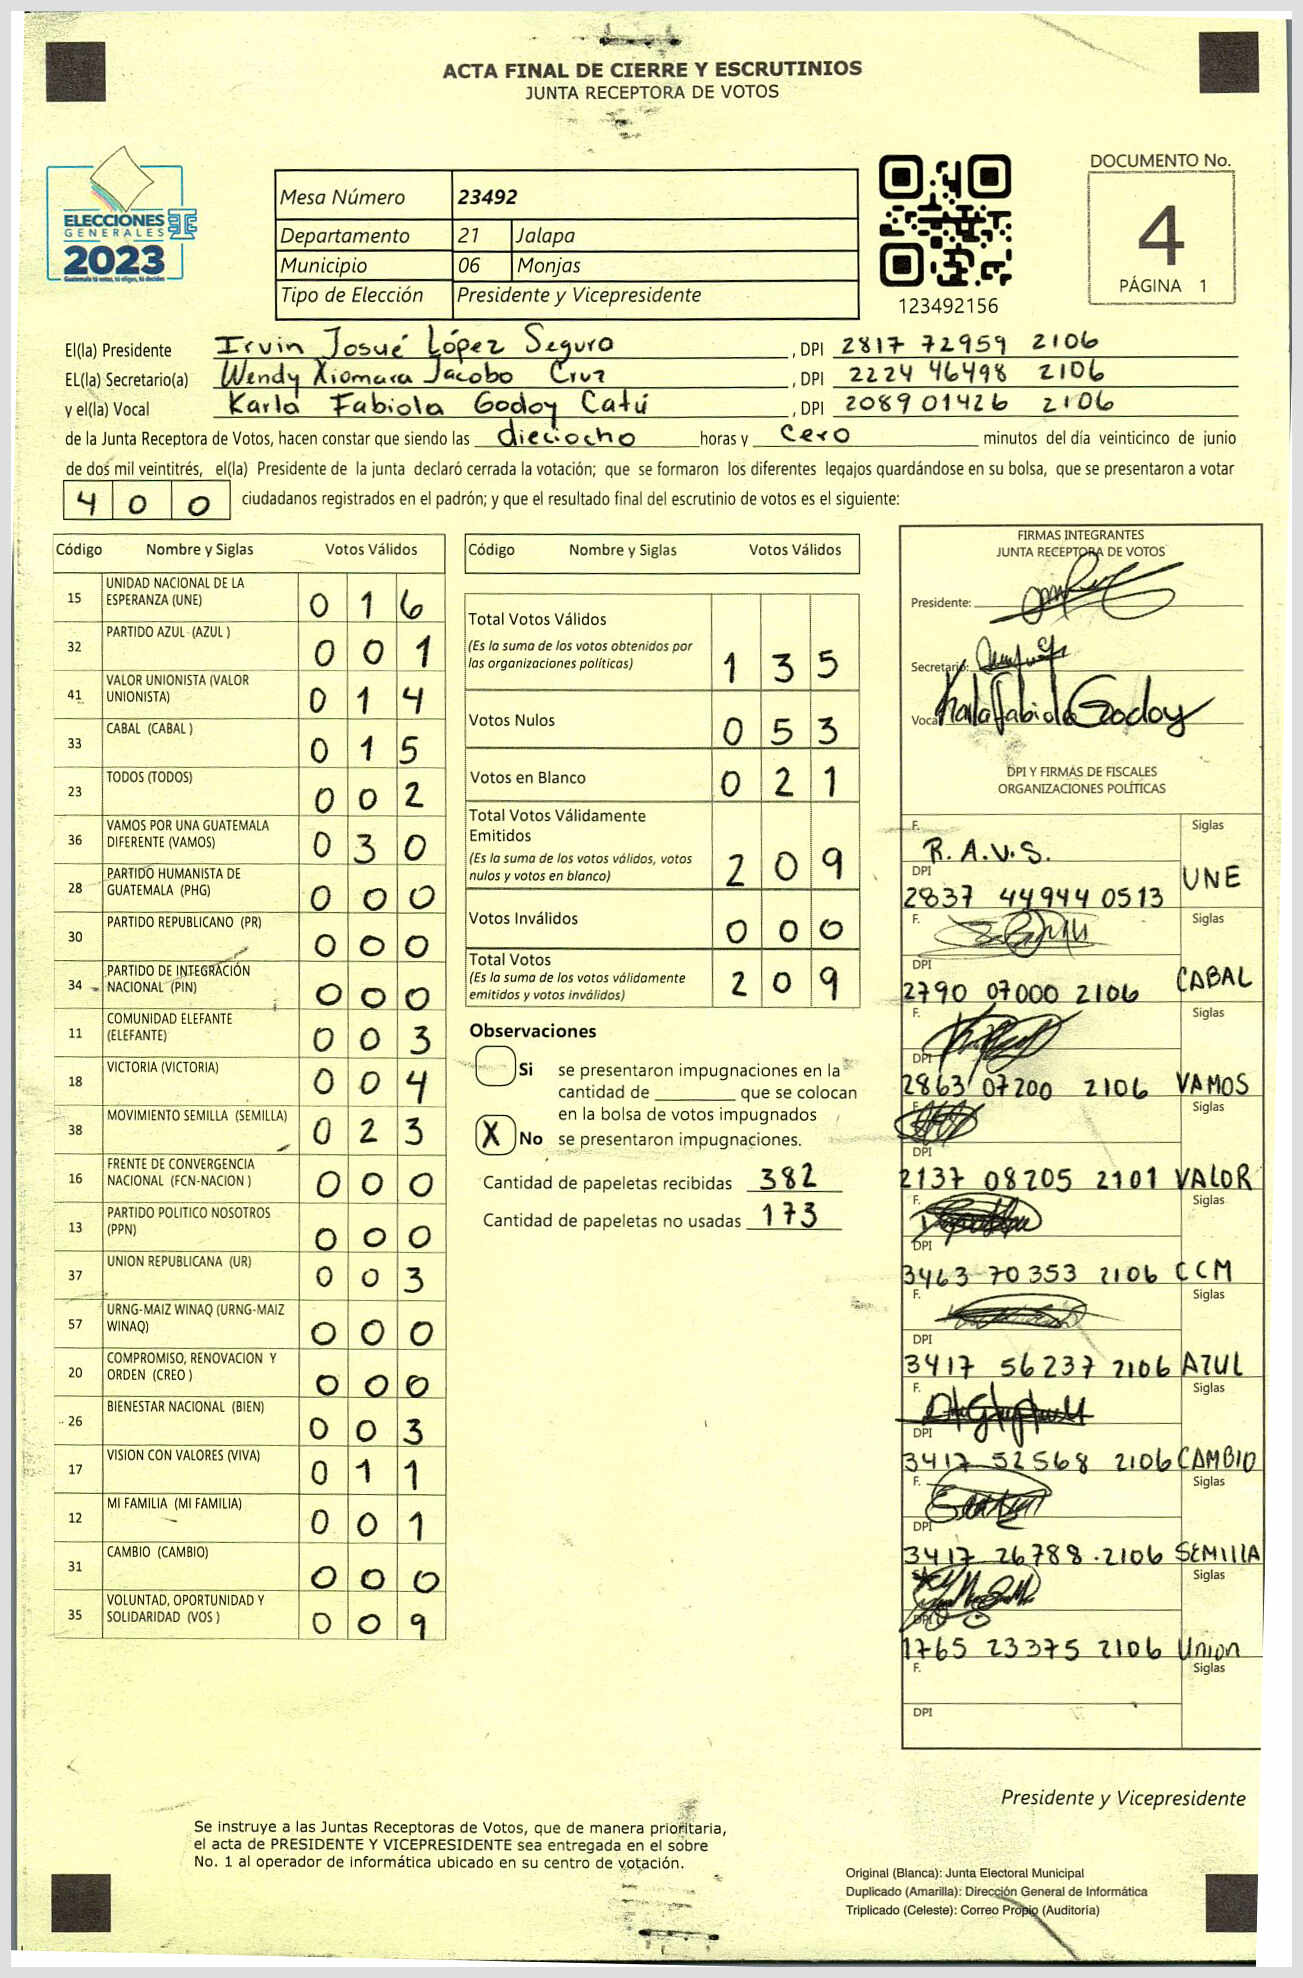 ACTA FINAL DE CIERRE Y ESCRUTINIOS
JUNTA RECEPTORA DE VOTOS
ELECCIONES
GENERALES
2023
Guatemala tú votas, tú eliges, tú decides
Mesa Número 23492
Departamento 21 Jalapa
Municipio 06 Monjas
Tipo de Elección Presidente y Vicepresidente
123492156
DOCUMENTO No.
4
PÁGINA 1
El(la) Presidente Irvin Josué López Seguro , DPI 2817 72959 2106
EL(la) Secretario(a) Wendy Xiomara Jacobo Cruz , DPI 2224 46498 2106
y el(la) Vocal Karla Fabiola Godoy Catú , DPI 2089 01426 2106
de la Junta Receptora de Votos, hacen constar que siendo las dieciocho horas y cero minutos del día veinticinco de junio
de dos mil veintitrés, el(la) Presidente de la junta declaró cerrada la votación; que se formaron los diferentes legajos guardándose en su bolsa, que se presentaron a votar
4 0 0 ciudadanos registrados en el padrón; y que el resultado final del escrutinio de votos es el siguiente:
Código Nombre y Siglas Votos Válidos
15 UNIDAD NACIONAL DE LA
ESPERANZA (UNE) 0 1 6
32 PARTIDO AZUL (AZUL ) 0 0 1
41 VALOR UNIONISTA (VALOR
UNIONISTA) 0 1 4
33 CABAL (CABAL ) 0 1 5
23 TODOS (TODOS) 0 0 2
36 VAMOS POR UNA GUATEMALA
DIFERENTE (VAMOS) 0 3 0
28 PARTIDO HUMANISTA DE
GUATEMALA (PHG) 0 0 0
30 PARTIDO REPUBLICANO (PR) 0 0 0
34 PARTIDO DE INTEGRACIÓN
NACIONAL (PIN) 0 0 0
11 COMUNIDAD ELEFANTE
(ELEFANTE) 0 0 3
18 VICTORIA (VICTORIA) 0 0 4
38 MOVIMIENTO SEMILLA (SEMILLA) 0 2 3
16 FRENTE DE CONVERGENCIA
NACIONAL (FCN-NACION ) 0 0 0
13 PARTIDO POLITICO NOSOTROS
(PPN) 0 0 0
37 UNION REPUBLICANA (UR) 0 0 3
57 URNG-MAIZ WINAQ (URNG-MAIZ
WINAQ) 0 0 0
20 COMPROMISO, RENOVACION Y
ORDEN (CREO ) 0 0 0
26 BIENESTAR NACIONAL (BIEN) 0 0 3
17 VISION CON VALORES (VIVA) 0 1 1
12 MI FAMILIA (MI FAMILIA) 0 0 1
31 CAMBIO (CAMBIO) 0 0 0
35 VOLUNTAD, OPORTUNIDAD Y
SOLIDARIDAD (VOS ) 0 0 9
Código Nombre y Siglas Votos Válidos
Total Votos Válidos
(Es la suma de los votos obtenidos por
las organizaciones políticas) 1 3 5
Votos Nulos 0 5 3
Votos en Blanco 0 2 1
Total Votos Válidamente
Emitidos
(Es la suma de los votos válidos, votos
nulos y votos en blanco) 2 0 9
Votos Inválidos 0 0 0
Total Votos
(Es la suma de los votos válidamente
emitidos y votos inválidos) 2 0 9
Observaciones
Si se presentaron impugnaciones en la
cantidad de ________ que se colocan
en la bolsa de votos impugnados
X No se presentaron impugnaciones.
Cantidad de papeletas recibidas 382
Cantidad de papeletas no usadas 173
FIRMAS INTEGRANTES
JUNTA RECEPTORA DE VOTOS
Presidente:
Secretario:
Vocal Karla Fabiola Godoy
DPI Y FIRMAS DE FISCALES
ORGANIZACIONES POLÍTICAS
F. R.A.V.S. Siglas
DPI 2837 44944 0513 UNE
F. Siglas
DPI 2790 07000 2106 CABAL
F. Siglas
DPI 2863 07200 2106 VAMOS
F. Siglas
DPI 2137 08205 2101 VALOR
F. Siglas
DPI 3463 70353 2106 CCM
F. Siglas
DPI 3417 56237 2106 AZUL
F. Siglas
DPI 3417 52568 2106 CAMBIO
F. Siglas
DPI 3417 26788 .2106 SEMILLA
F. Siglas
DPI 1765 23375 2106 Union
F. Siglas
DPI
Presidente y Vicepresidente
Se instruye a las Juntas Receptoras de Votos, que de manera prioritaria,
el acta de PRESIDENTE Y VICEPRESIDENTE sea entregada en el sobre
No. 1 al operador de informática ubicado en su centro de votación.
Original (Blanca): Junta Electoral Municipal
Duplicado (Amarilla): Dirección General de Informática
Triplicado (Celeste): Correo Propio (Auditoría)